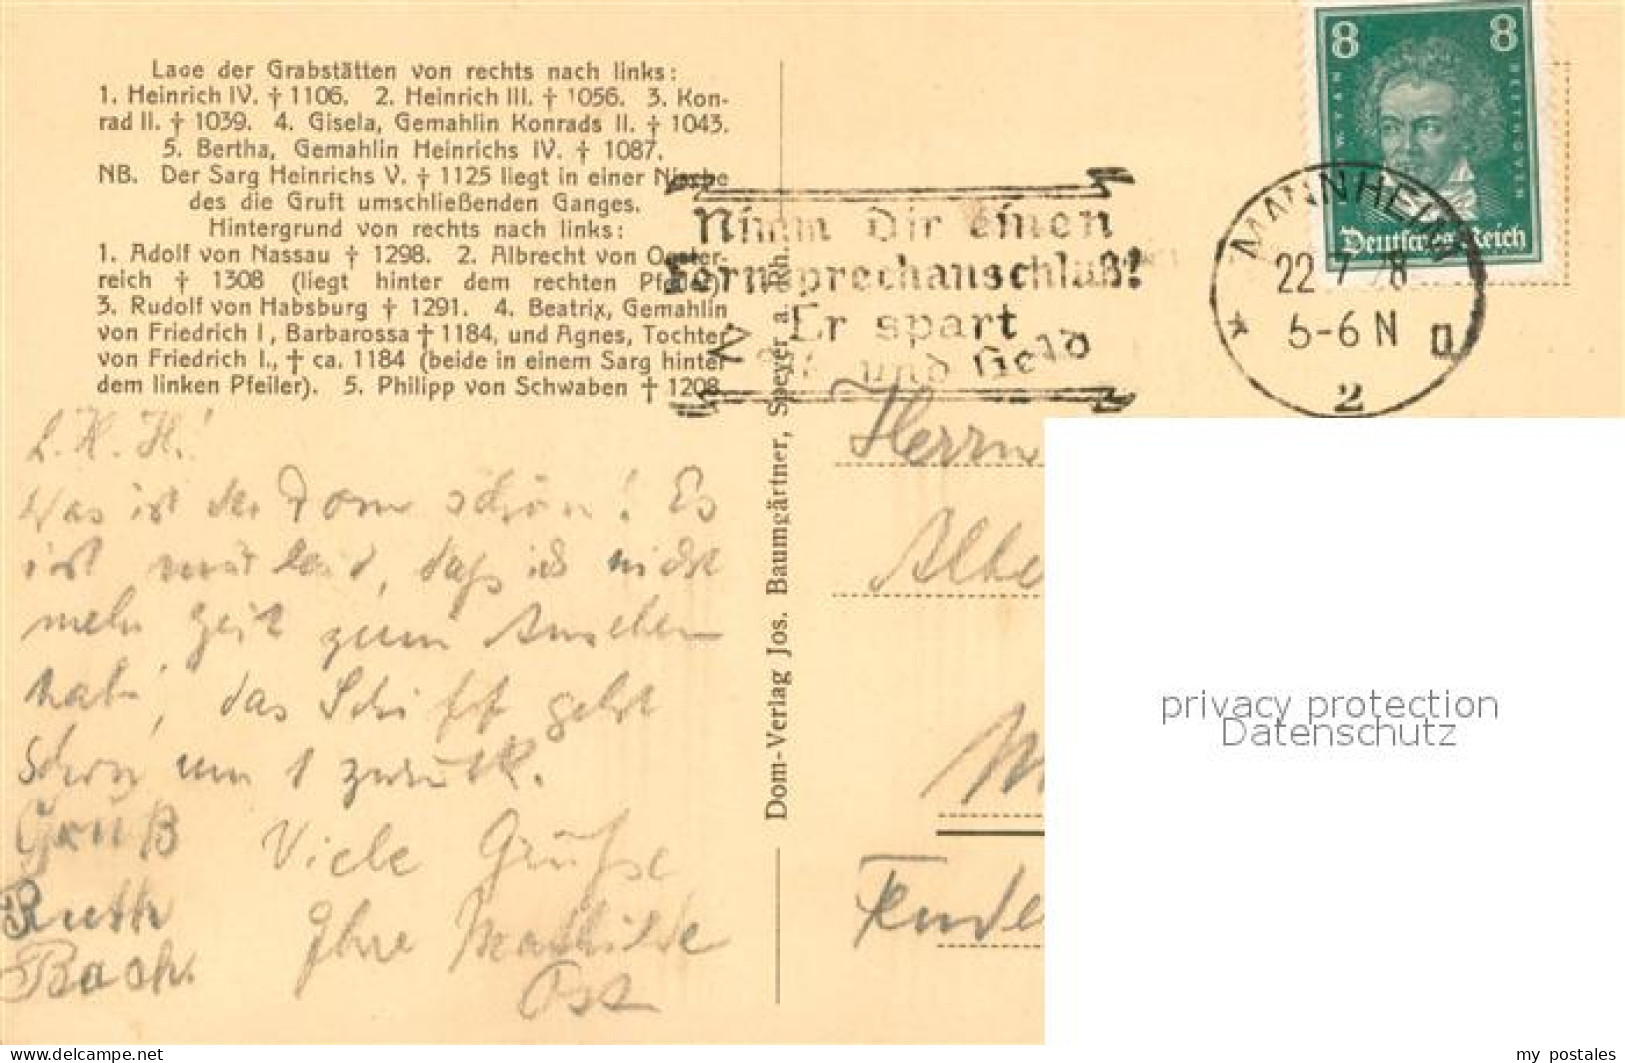 Lage der Grabstätten von rechts nach links:
1. Heinrich IV. † 1106. 2. Heinrich III. † 1056. 3. Kon-
rad II. † 1039. 4. Gisela, Gemahlin Konrads II. † 1043.
5. Bertha, Gemahlin Heinrichs IV. † 1087.
NB. Der Sarg Heinrichs V. † 1125 liegt in einer Nische
des die Gruft umschließenden Ganges.
Hintergrund von rechts nach links:
1. Adolf von Nassau † 1298. 2. Albrecht von Oester-
reich † 1308 (liegt hinter dem rechten Pfeiler)
3. Rudolf von Habsburg † 1291. 4. Beatrix, Gemahlin
von Friedrich I, Barbarossa † 1184, und Agnes, Tochter
von Friedrich I., † ca. 1184 (beide in einem Sarg hinter
dem linken Pfeiler). 5. Philipp von Schwaben † 1208
L. H. H.!
Was ist der Dom schön! Es
ist leid, daß ich nicht
mehr Zeit zum Ansehen
hab, das Schiff geht
schon um 1 zurück.
Gruß
Ruth
Bach.
Viele Grüße
Ihre Mathilde
Ost
Dom-Verlag Jos. Baumgärtner, Speyer a. Rh.
Nimm Dir einen
Fernsprechanschluß!
Er spart
und Geld
8 8
BEETHOVEN
Deutsches Reich
MANNHEIM
22 7 28
5-6 N
2
Herrn
Albe
M
privacy protection
Datenschutz
www.delcampe.net
my_postales